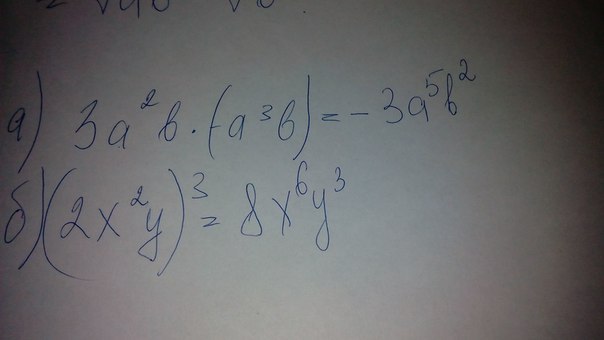 а) 3a²b · (-a³b) = -3a⁵b²
б) (2x²y)³ = 8x⁶y³